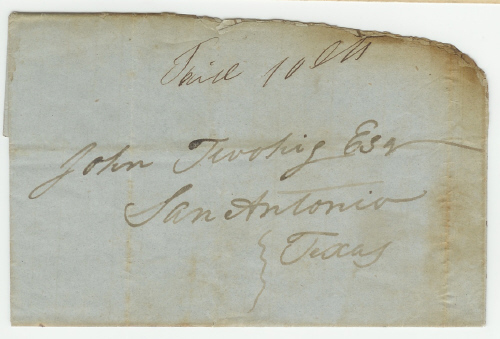 Paid 10 cts
John Twohig Esqr
San Antonio
Texas